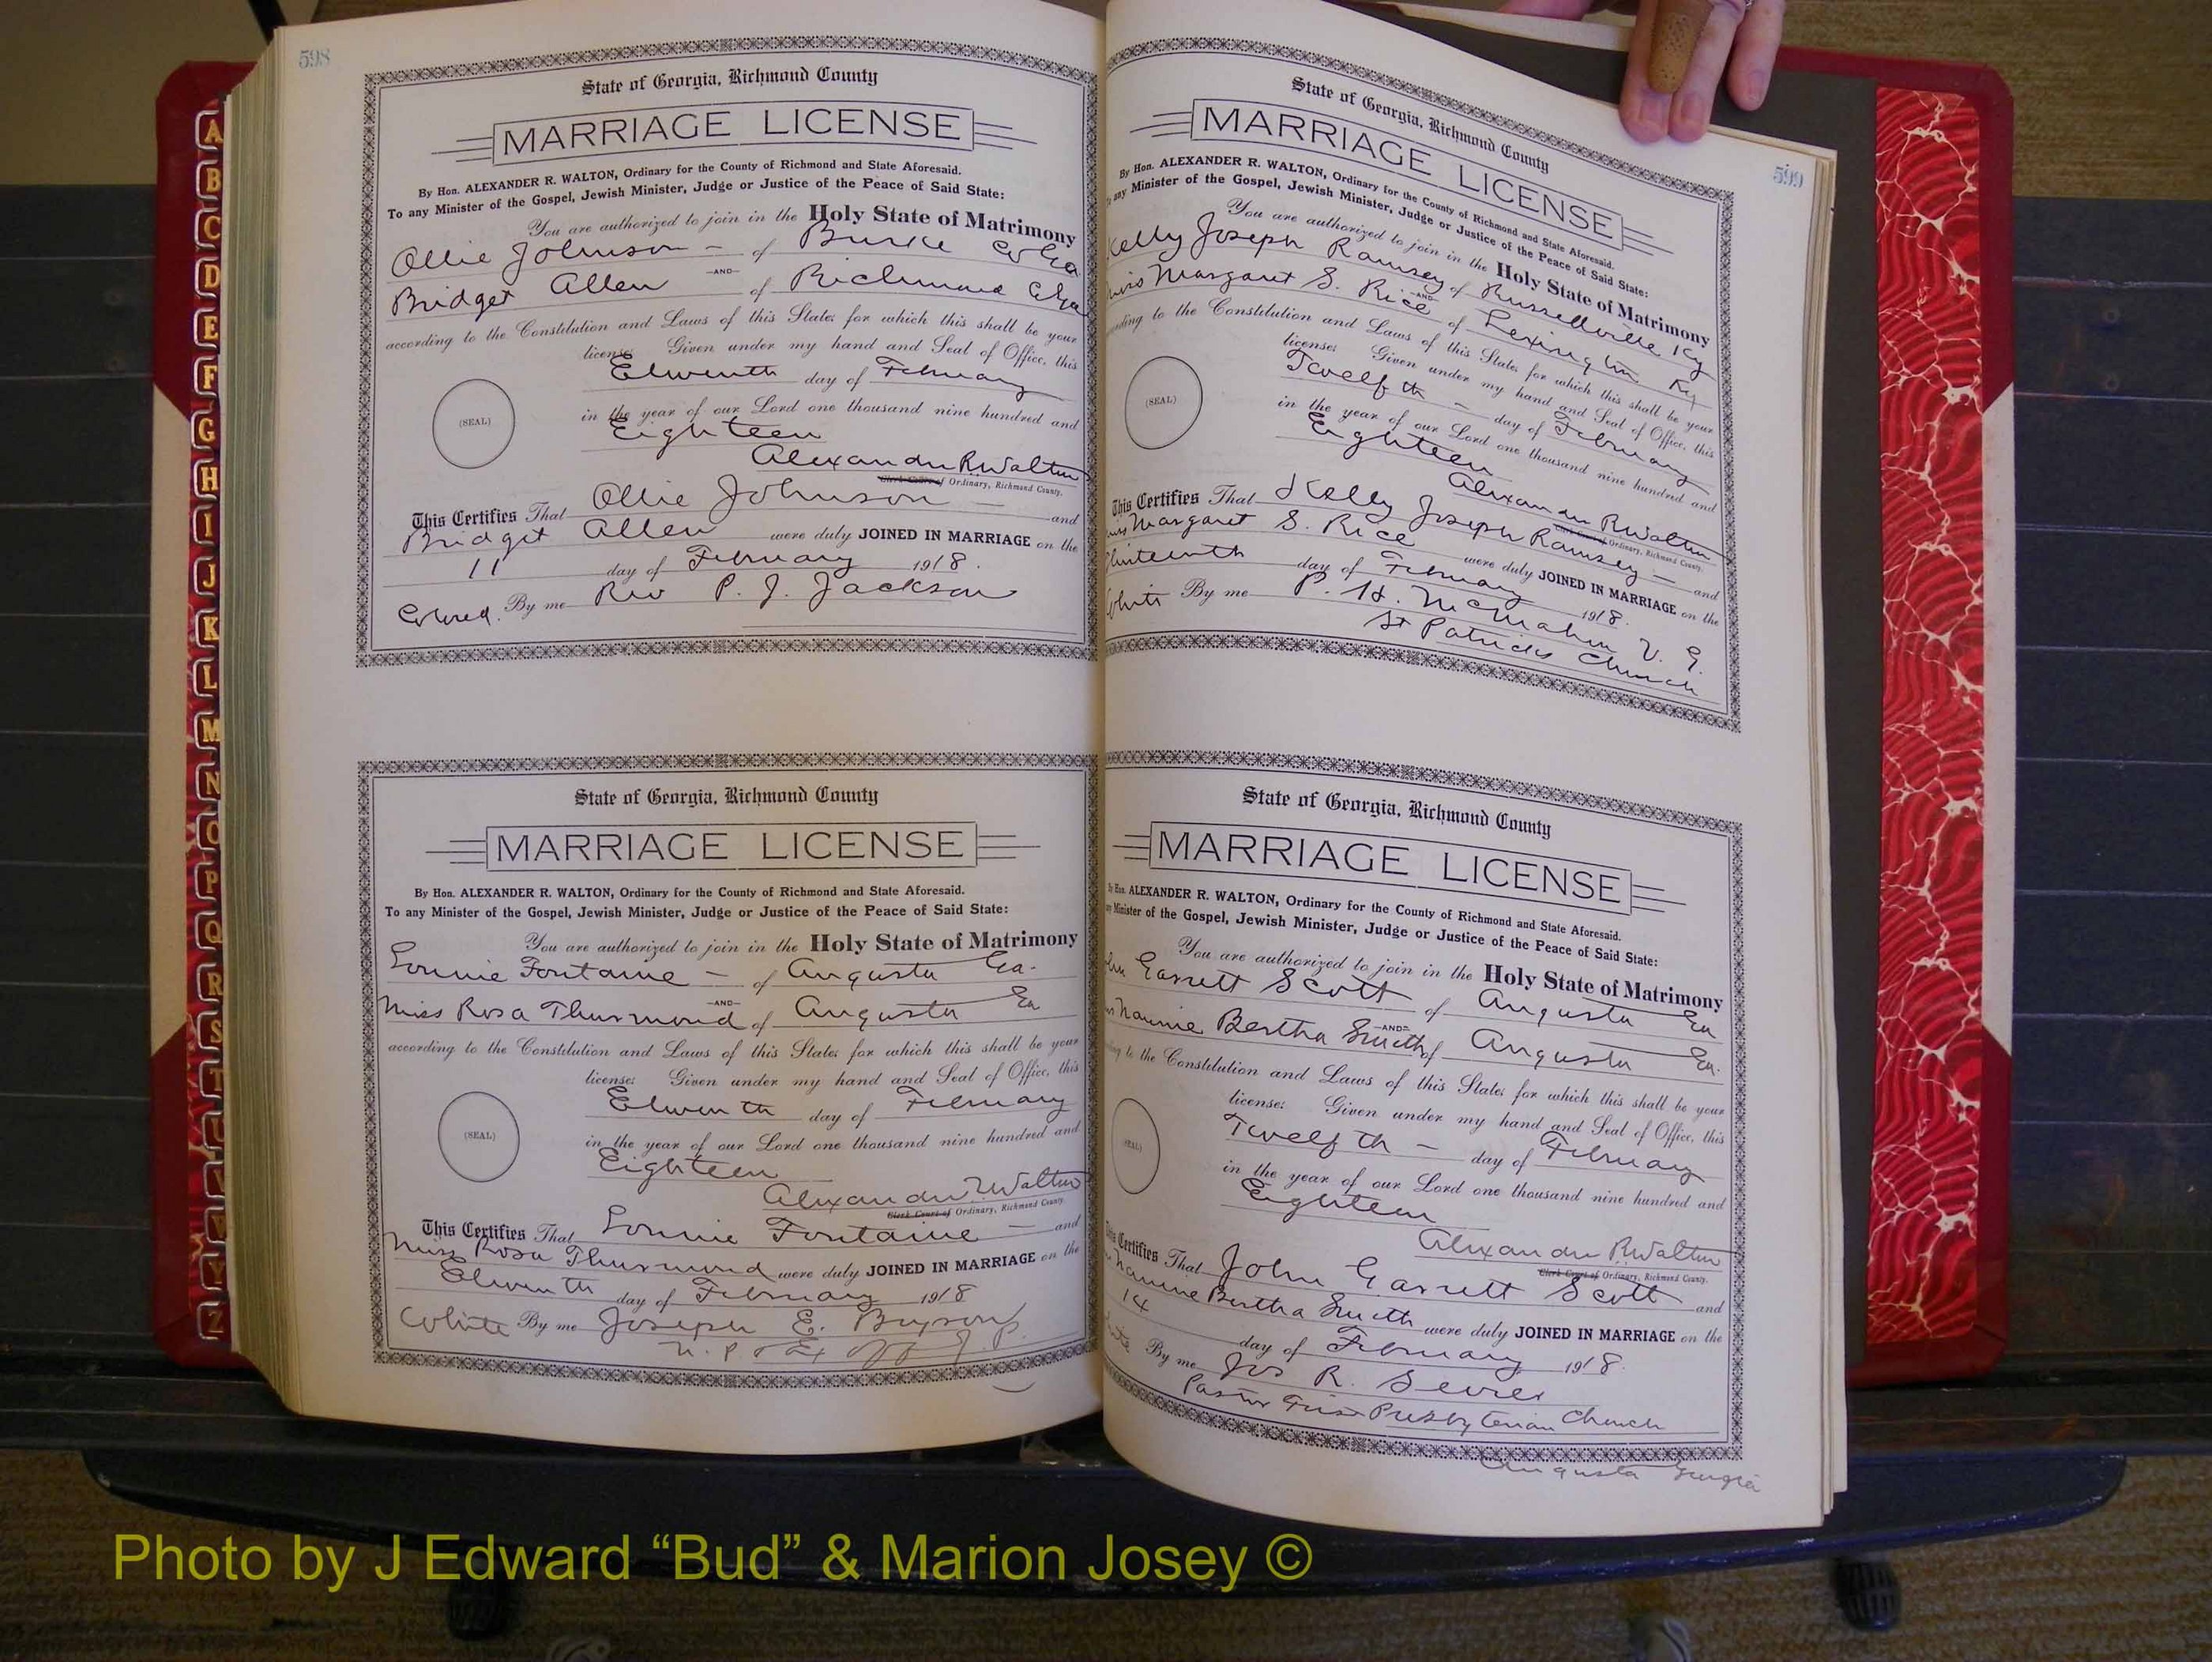 598
State of Georgia, Richmond County
MARRIAGE LICENSE
By Hon. ALEXANDER R. WALTON, Ordinary for the County of Richmond and State Aforesaid.
To any Minister of the Gospel, Jewish Minister, Judge or Justice of the Peace of Said State:
You are authorized to join in the Holy State of Matrimony
Ollie Johnson - of Burke Co Ga
AND
Bridget Allen of Richmond Co Ga
according to the Constitution and Laws of this State; for which this shall be your
license: Given under my hand and Seal of Office, this
Eleventh day of February
(SEAL)
in the year of our Lord one thousand nine hundred and
Eighteen
Alexander R Walton
Clerk Court of Ordinary, Richmond County.
This Certifies That Ollie Johnson — and
Bridget Allen were duly JOINED IN MARRIAGE on the
11 day of February 1918.
Colored. By me Rev P. J. Jackson
State of Georgia, Richmond County
MARRIAGE LICENSE
By Hon. ALEXANDER R. WALTON, Ordinary for the County of Richmond and State Aforesaid.
To any Minister of the Gospel, Jewish Minister, Judge or Justice of the Peace of Said State:
You are authorized to join in the Holy State of Matrimony
Lonnie Fontaine - of Augusta Ga.
AND
Miss Rosa Thurmond of Augusta Ga
according to the Constitution and Laws of this State; for which this shall be your
license: Given under my hand and Seal of Office, this
Eleventh day of February
(SEAL)
in the year of our Lord one thousand nine hundred and
Eighteen
Alexander R Walton
Clerk Court of Ordinary, Richmond County.
This Certifies That Lonnie Fontaine — and
Miss Rosa Thurmond were duly JOINED IN MARRIAGE on the
Eleventh day of February 1918
White By me Joseph E.
N. P. & Ex Off J. P
599
State of Georgia, Richmond County
MARRIAGE LICENSE
By Hon. ALEXANDER R. WALTON, Ordinary for the County of Richmond and State Aforesaid.
To any Minister of the Gospel, Jewish Minister, Judge or Justice of the Peace of Said State:
You are authorized to join in the Holy State of Matrimony
Kelly Joseph Ramsey of Russellville Ky
AND
Miss Margaret S. Rice of Lexington. Ky
according to the Constitution and Laws of this State, for which this shall be your
license: Given under my hand and Seal of Office, this
Twelfth - day of February
(SEAL)
in the year of our Lord one thousand nine hundred and
Eighteen
Alexander R Walton
Clerk Court of Ordinary, Richmond County.
This Certifies That Kelly Joseph Ramsey — and
Miss Margaret S. Rice were duly JOINED IN MARRIAGE on the
day of February 1918.
White By me P. H. McMahon V. G.
St Patricks Church
State of Georgia, Richmond County
MARRIAGE LICENSE
By Hon. ALEXANDER R. WALTON, Ordinary for the County of Richmond and State Aforesaid.
any Minister of the Gospel, Jewish Minister, Judge or Justice of the Peace of Said State:
You are authorized to join in the Holy State of Matrimony
John Garrett Scott of Augusta Ga
AND
Nannie Bertha Smith of Augusta Ga.
to the Constitution and Laws of this State; for which this shall be your
license: Given under my hand and Seal of Office, this
Twelfth - day of February
(SEAL)
in the year of our Lord one thousand nine hundred and
Eighteen
Alexander R Walton
Clerk Court of Ordinary, Richmond County.
This Certifies That John Garrett Scott and
Nannie Bertha Smith were duly JOINED IN MARRIAGE on the
14 day of February 1918.
White By me Jos R. Sevier
Pastor First Presbyterian Church
Augusta Georgia
A
B
C
D
E
F
G
H
I
J
K
L
M
N
O
P
Q
R
S
T
U
V
W
Y
Z
Photo by J Edward “Bud” & Marion Josey ©